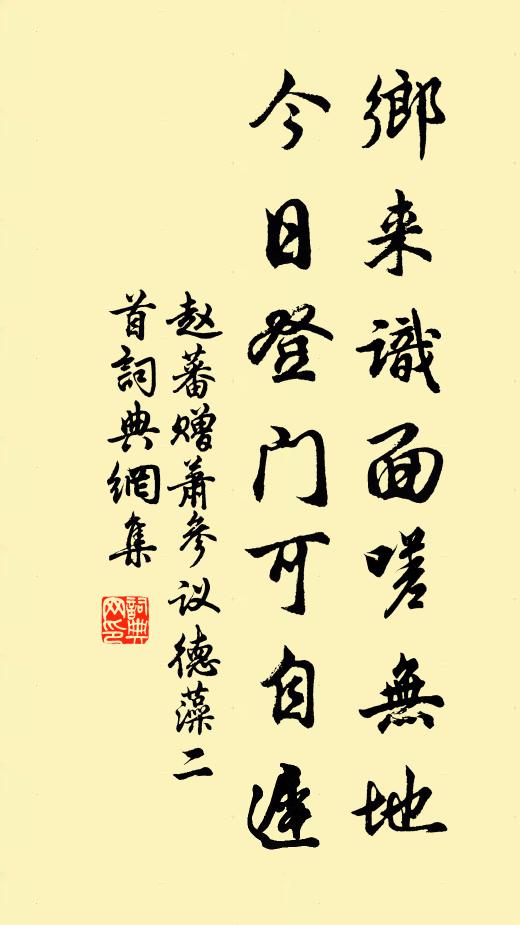 鄉来識面嗟無地
今日登门可自遲
赵蕃赠萧参议德藻二
首詞典網集
詞典网印